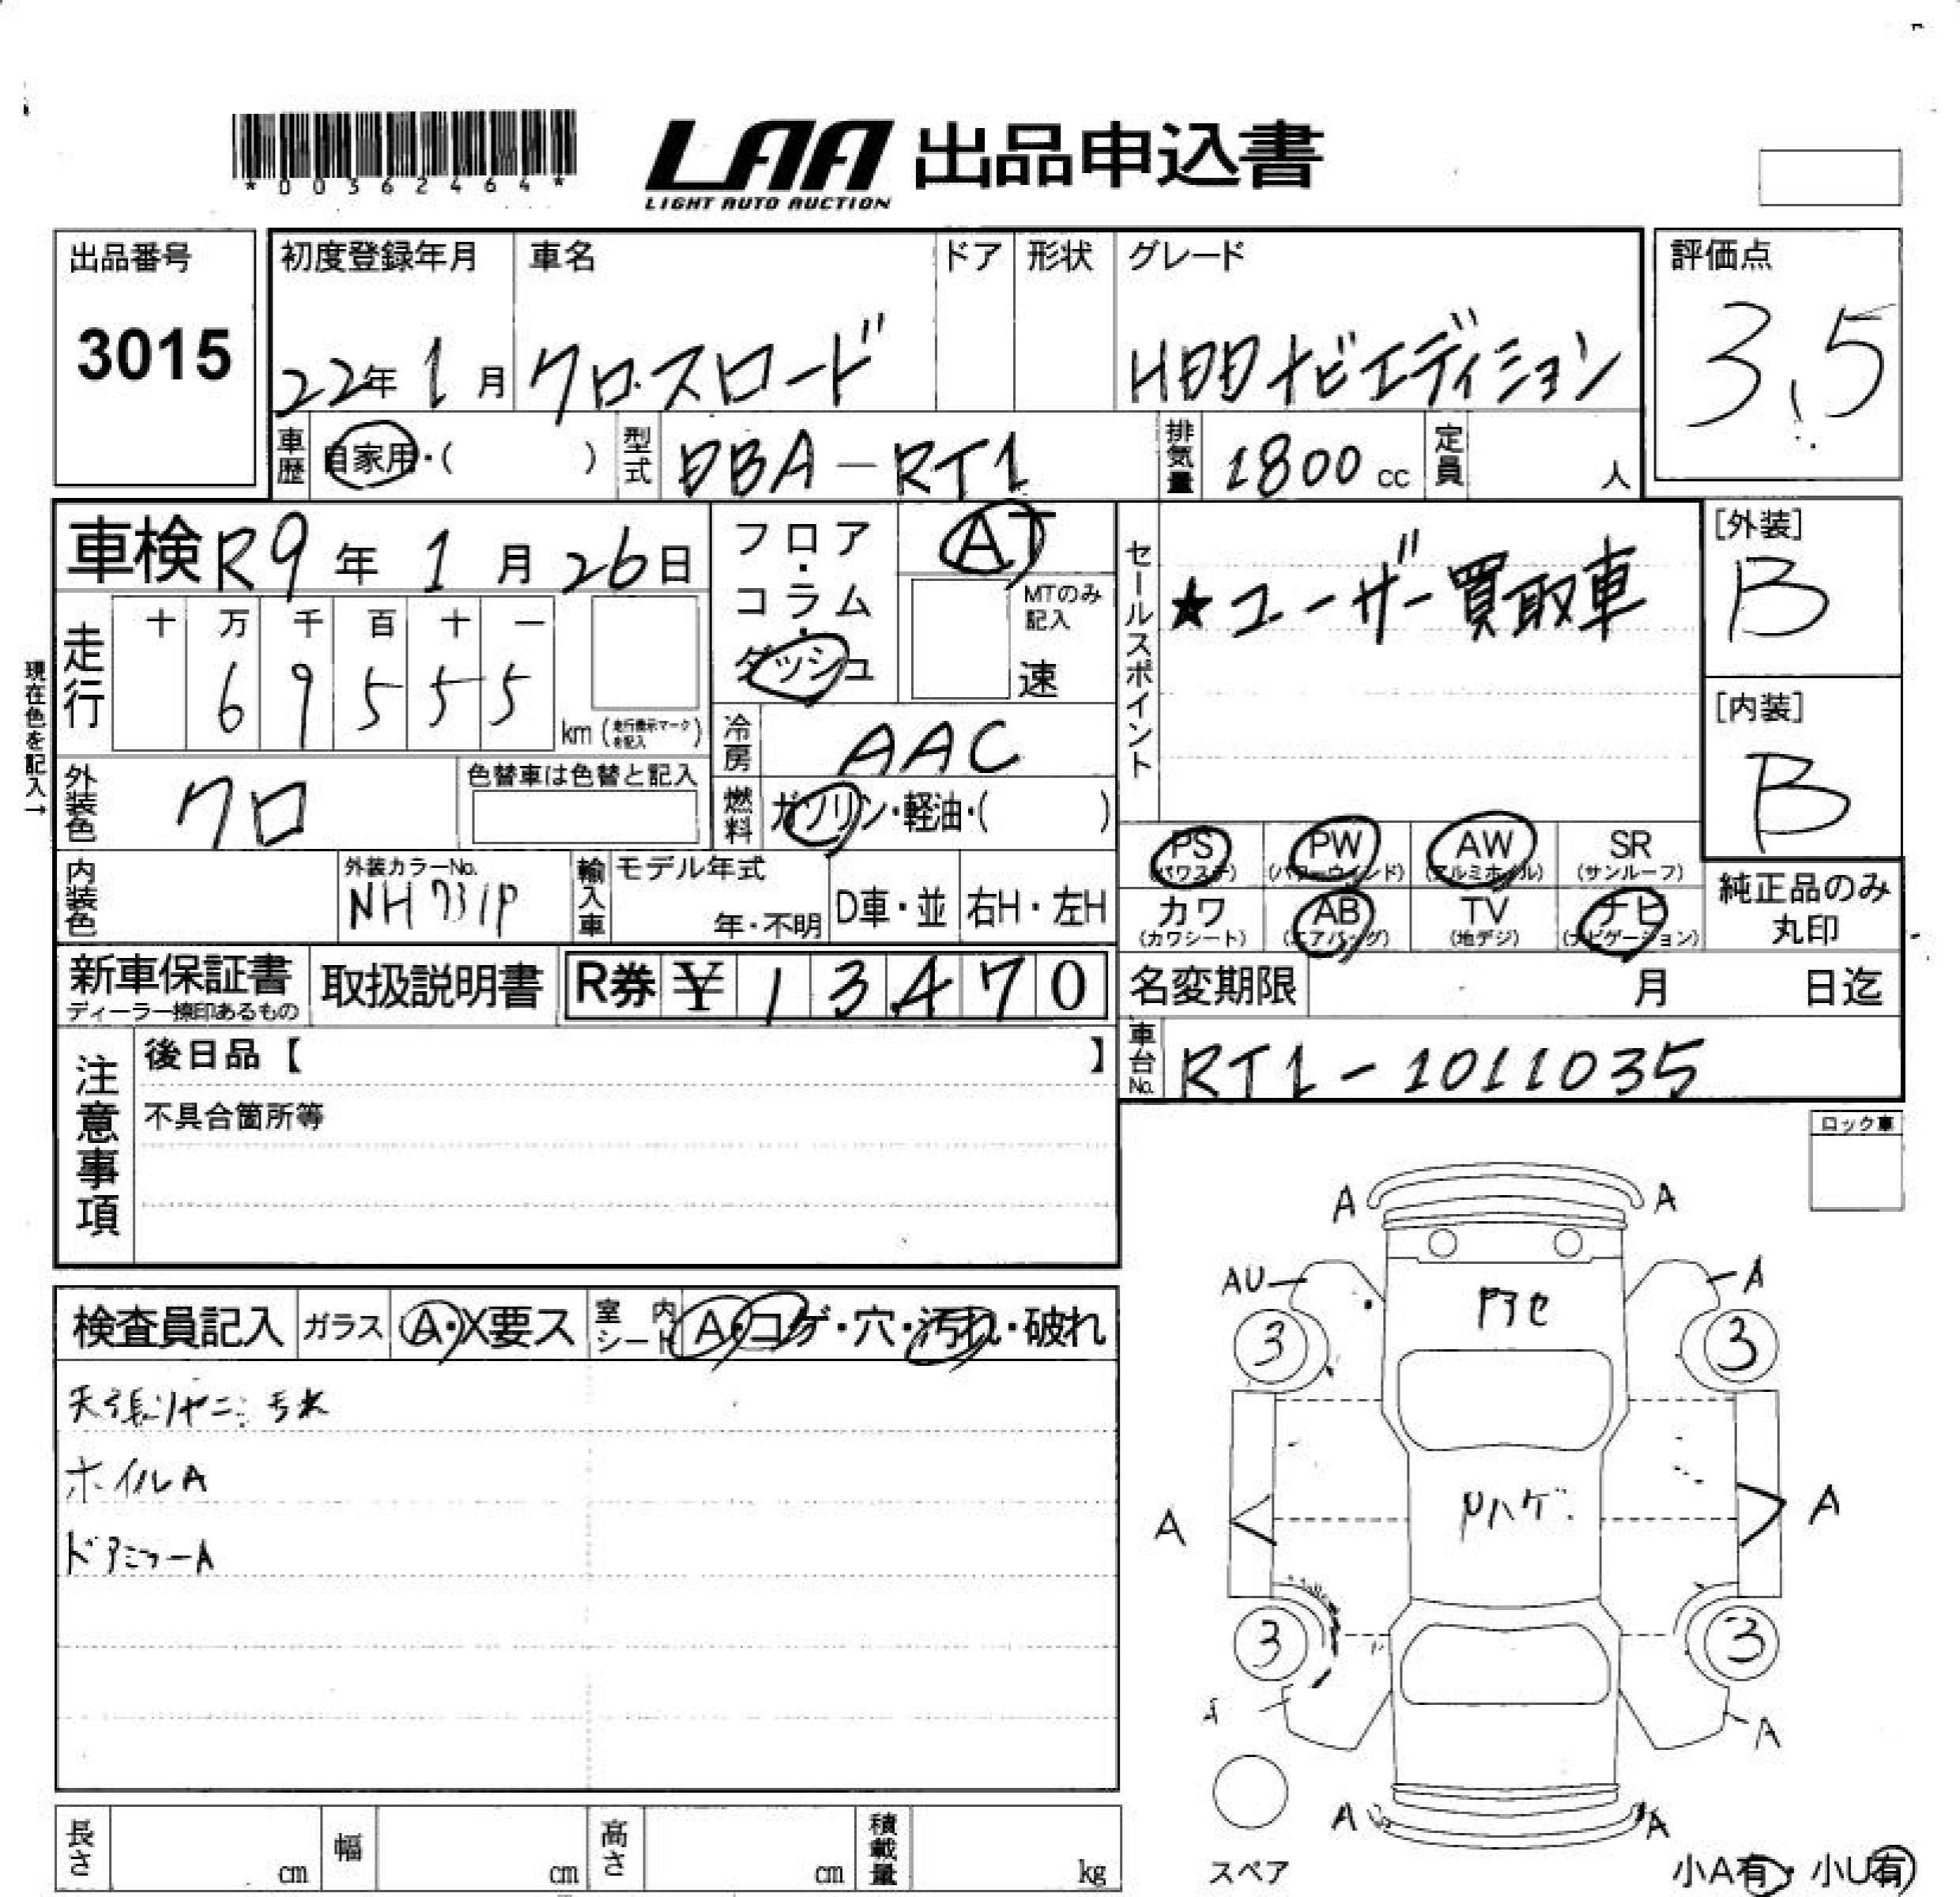 *00362464*
LAA 出品申込書
LIGHT AUTO AUCTION
出品番号 初度登録年月 車名 ドア 形状 グレード 評価点
3015 22年 1月 クロスロード HDDナビエディション 3.5
車歴 自家用・( ) 型式 DBA-RT1 排気量 1800cc 定員 人
車検 R9年 1月 26日 フロア・コラム・ダッシュ AT セールスポイント ★ユーザー買取車 [外装] B
MTのみ記入 速
走行 十 万 千 百 十 一
6 9 5 5 5 km (走行表示マークを記入)
現在色を記入→
冷房 AAC [内装] B
外装色 クロ 色替車は色替と記入 燃料 ガソリン・軽油・( )
PS (パワステ) PW (パワーウィンド) AW (アルミホイル) SR (サンルーフ)
内装色 外装カラーNo. NH731P 輸入車 モデル年式 年・不明 D車・並 右H・左H
カワ (カワシート) AB (エアバッグ) TV (地デジ) ナビ (ナビゲーション) 純正品のみ丸印
新車保証書 ディーラー捺印あるもの 取扱説明書 R券 ¥ 1 3 4 7 0 名変期限 月 日迄
注意事項 後日品【 】 車台No. RT1-1011035
不具合箇所等
ロック車
検査員記入 ガラス A・X要ス 室内シート A・コゲ・穴・汚れ・破れ
天張りヤニ
ホイルA
ドアミラーA
A A
AU A
アセ
3 3
A Pハゲ A
3 3
A A
A A
スペア
小A有・小U有
長さ cm 幅 cm 高さ cm 積載量 kg